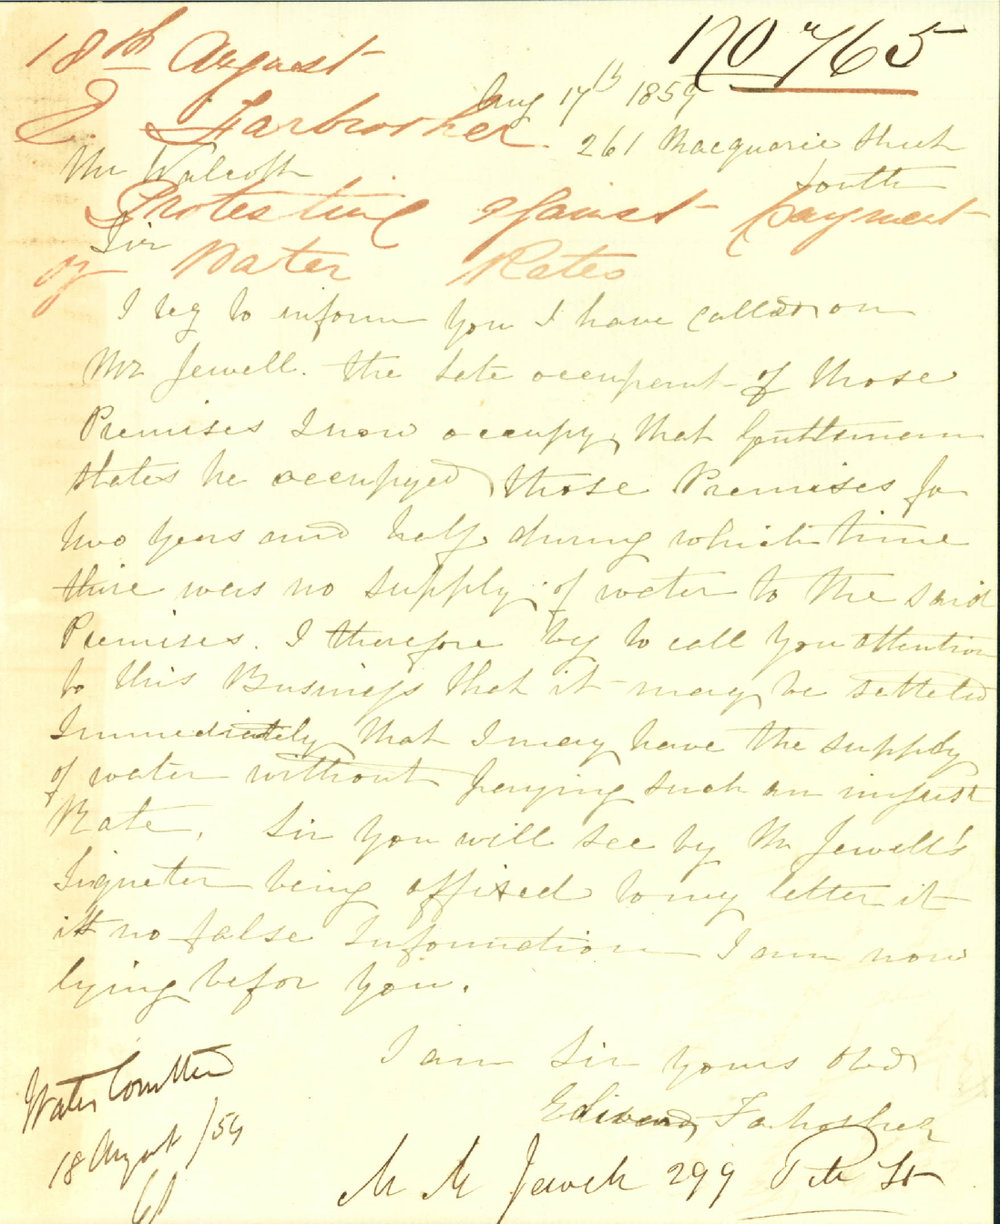 No 765
18th August
E. Farbrother.
Protesting against payment
of Water Rates
Aug 17th 1859
261 Macquarie Street
South
Mr Walcott
Sir
I beg to inform you I have called on
Mr Jewell. the late occupent of those
Premises I now occupy, that Gentlemen
states he occupyed those Premises for
two years and half, during which time
thire was no supply of water to the said
Premises. I therefore beg to call you attention
to this Business that it may be setteled
Immediately that I may have the supply
of water without paying such an unjust
Rate, Sir you will see by Mr Jewell's
Signeter being affixed to my letter it
is no false Information I am now
lying befor you.
I am Sir yours Obd
Edward Farbrother
M M Jewell 299 Pitt St
Water Comttee
18 August /59